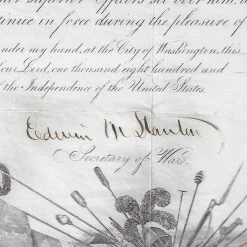 Superior Officers set over him, a
tinue in force during the pleasure of
nder my hand, at the City of Washington, this
our Lord, one thousand eight hundred and
the Independence of the United States.
Edwin M Stanton
Secretary of War.